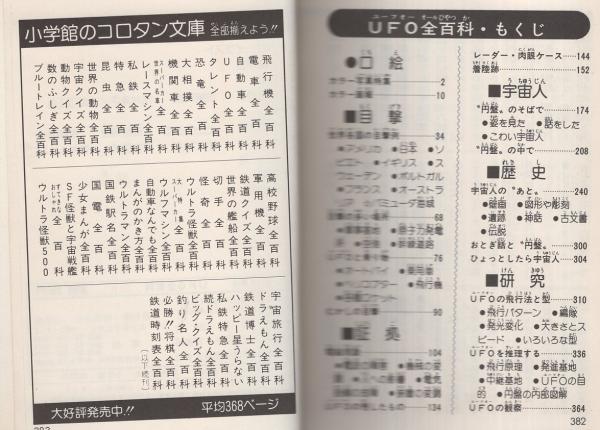 小学館のコロタン文庫 全部揃えよう!!
飛行機全百科
電車全百科
自動車全百科
UFO全百科
タレント全百科
恐竜全百科
大相撲全百科
機関車全百科
スーパーカー世界の名車
レースマシン全百科
私鉄全百科
特急全百科
昆虫全百科
世界の動物全百科
宇宙クイズ全百科
動物クイズ全百科
数のふしぎ全百科
ブルートレイン全百科
高校野球全百科
軍用機全百科
鉄道クイズ全百科
世界の艦船全百科
切手全百科
怪奇全百科
ウルトラ怪獣全百科
大特集スーパーカー
ウルフマシン全百科
自動車なんでも全百科
まんがのかき方全百科
ウルトラマン全百科
国鉄駅名全百科
国電全百科
少女まんが全百科
SF怪獣と宇宙戦艦
すてきなおしゃれ全百科
ウルトラ怪獣500
宇宙旅行全百科
ドラえもん全百科
鉄道博士全百科
ハッピー星うらない
私鉄特急全百科
続ドラえもん全百科
ビッグ・クイズ全百科
釣り名人全百科
必勝!!将棋全百科
鉄道時刻表全百科
(以下続刊)
大好評発売中!! 平均368ページ
UFO全百科・もくじ
●口絵
カラー写真特集……2
カラー画報……10
■目撃
世界各国の目撃例……34
●アメリカ ●日本 ●ソ
ビエト ●イギリス ●ス
ウェーデン ●ポルトガル
●フランス ●オーストラ
リア ●バミューダ海域
目撃の多い場所……68
●軍事基地 ●原子力発電
所 ●空港 ●幹線道路
UFOと乗り物……76
●オートバイ ●乗用車
●ヘリコプター ●飛行機
●宇宙ロケット
むかしの目撃……90
■証拠
104
134
レーダー・肉眼ケース……144
着陸跡……152
■宇宙人
"円盤"のそばで……174
●姿を見た ●話をした
●こわい宇宙人
"円盤"の中で……208
■歴史
宇宙人の"あと"……240
●壁画 ●図形や彫刻
●遺跡 ●神話 ●古文書
●伝説
おとぎ話と"円盤"……300
ひょっとしたら宇宙人……304
■研究
UFOの飛行法と型……310
●飛行パターン ●編隊
●発光変化 ●大きさとス
ピード ●いろいろな型
UFOを推理する……336
●飛行原理 ●発進基地
●中継基地 ●UFOの目
的 ●円盤の内部図解
UFOの観察……364
382